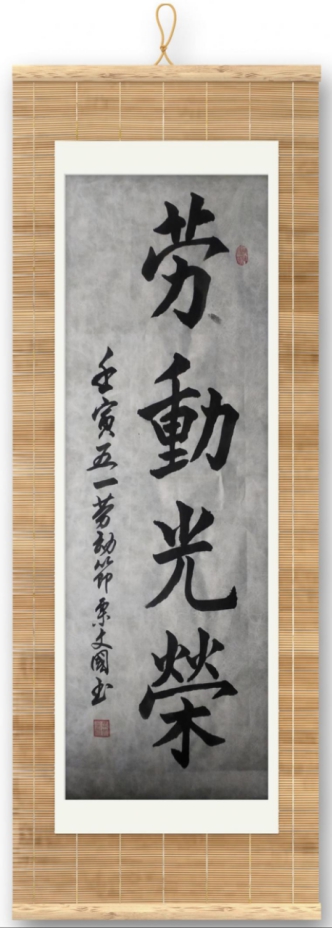 劳動光榮
壬寅五一劳动節栗文國书